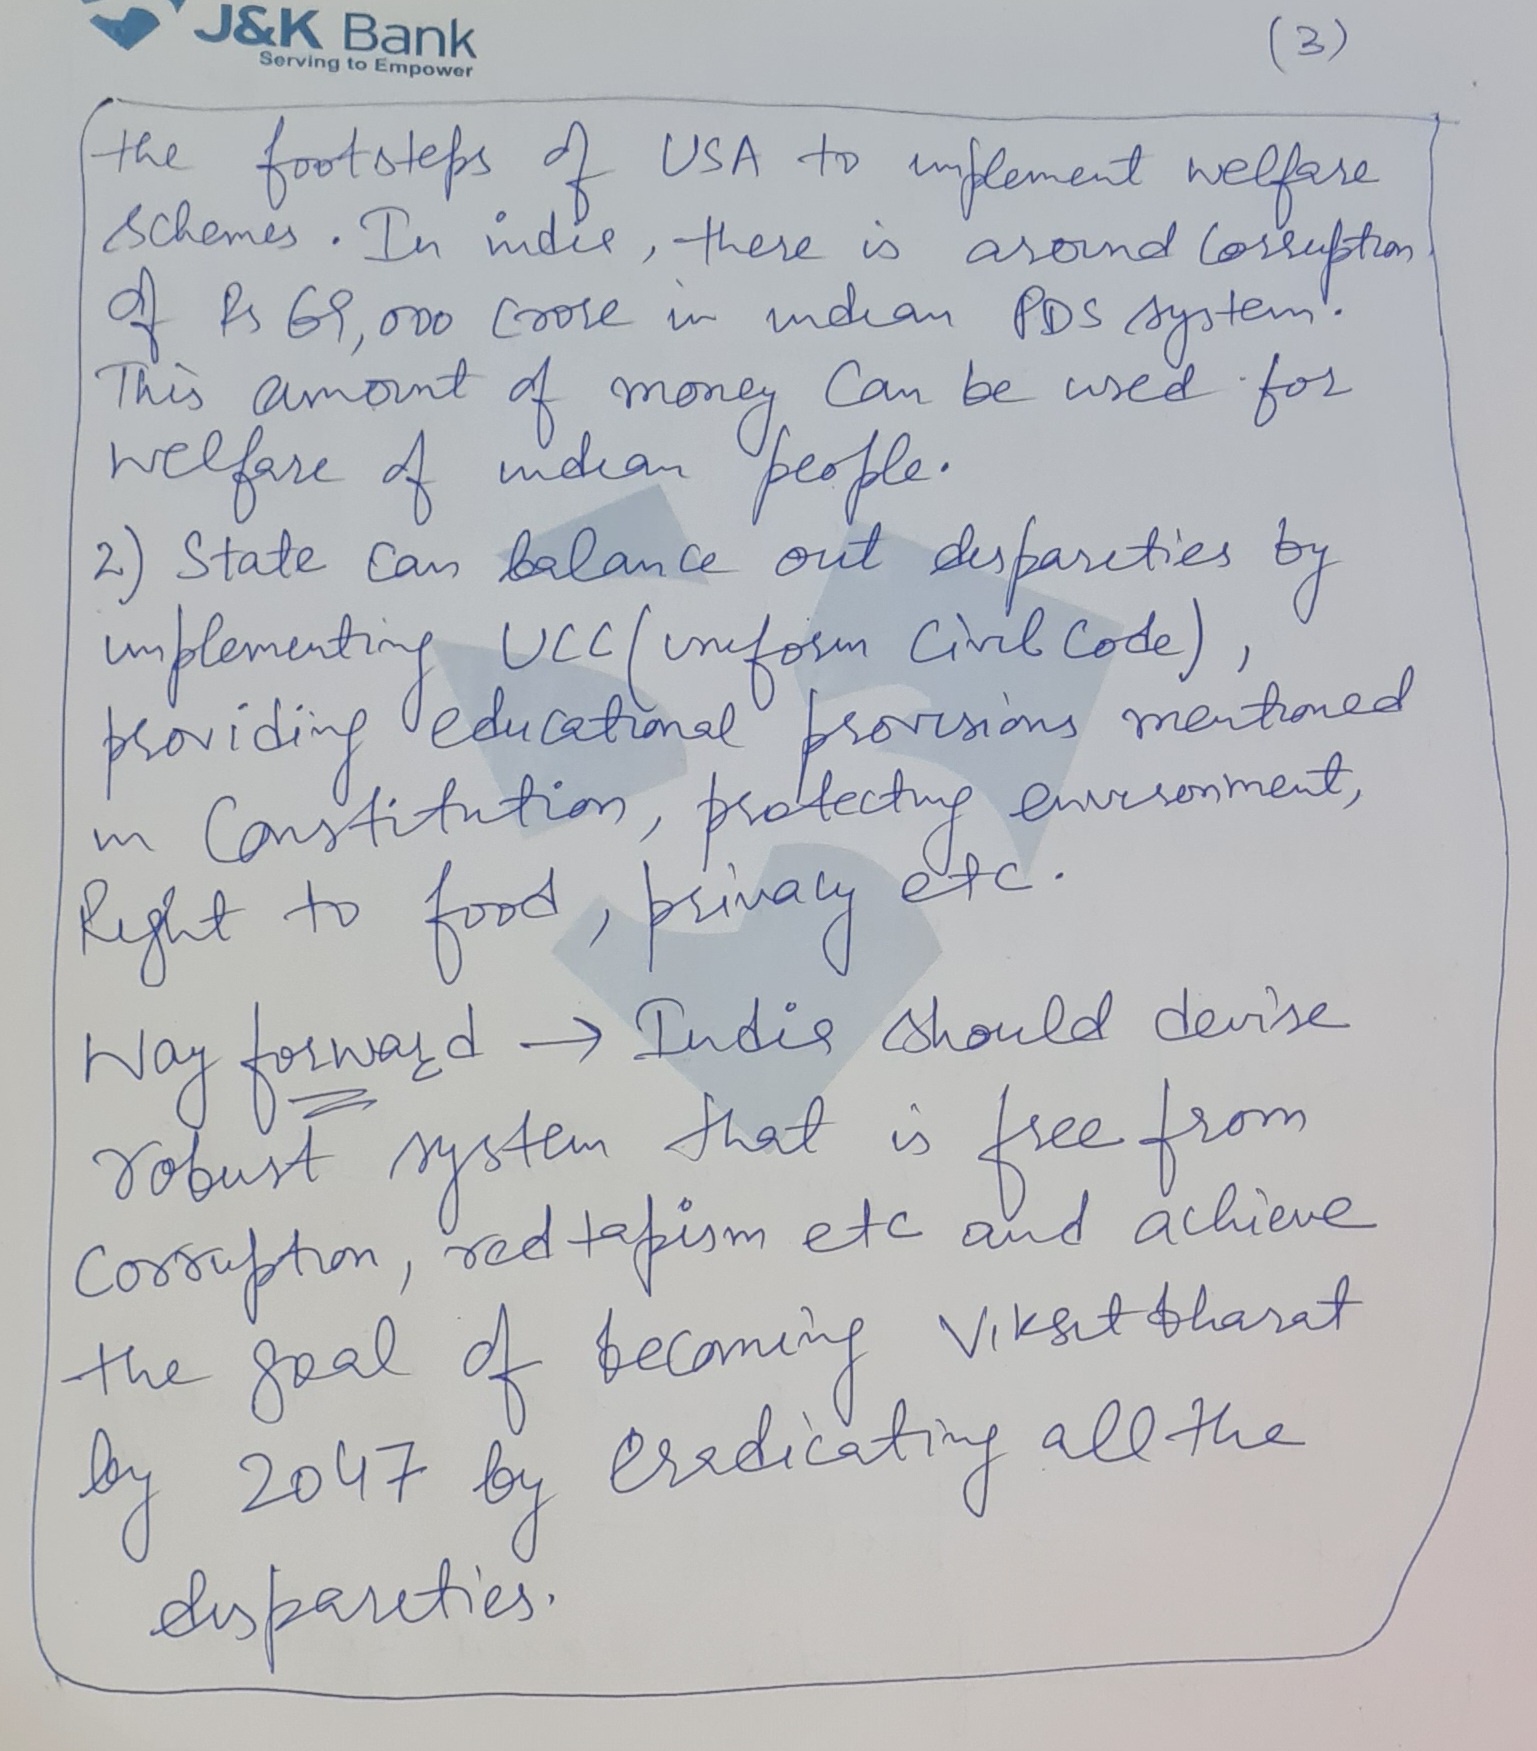 J&K Bank
Serving to Empower
(3)
the footsteps of USA to implement welfare
schemes. In india, there is around Corruption
of Rs 69,000 Crore in indian PDS system.
This amount of money Can be used for
welfare of indian people.
2) State can balance out disparities by
implementing UCC (uniform Civil Code),
providing educational provisions mentioned
in Constitution, protecting environment,
Right to food, privacy etc.
Way forward → India should devise
robust system that is free from
Corruption, red tapism etc and achieve
the goal of becoming Viksit bharat
by 2047 by eradicating all the
disparities.